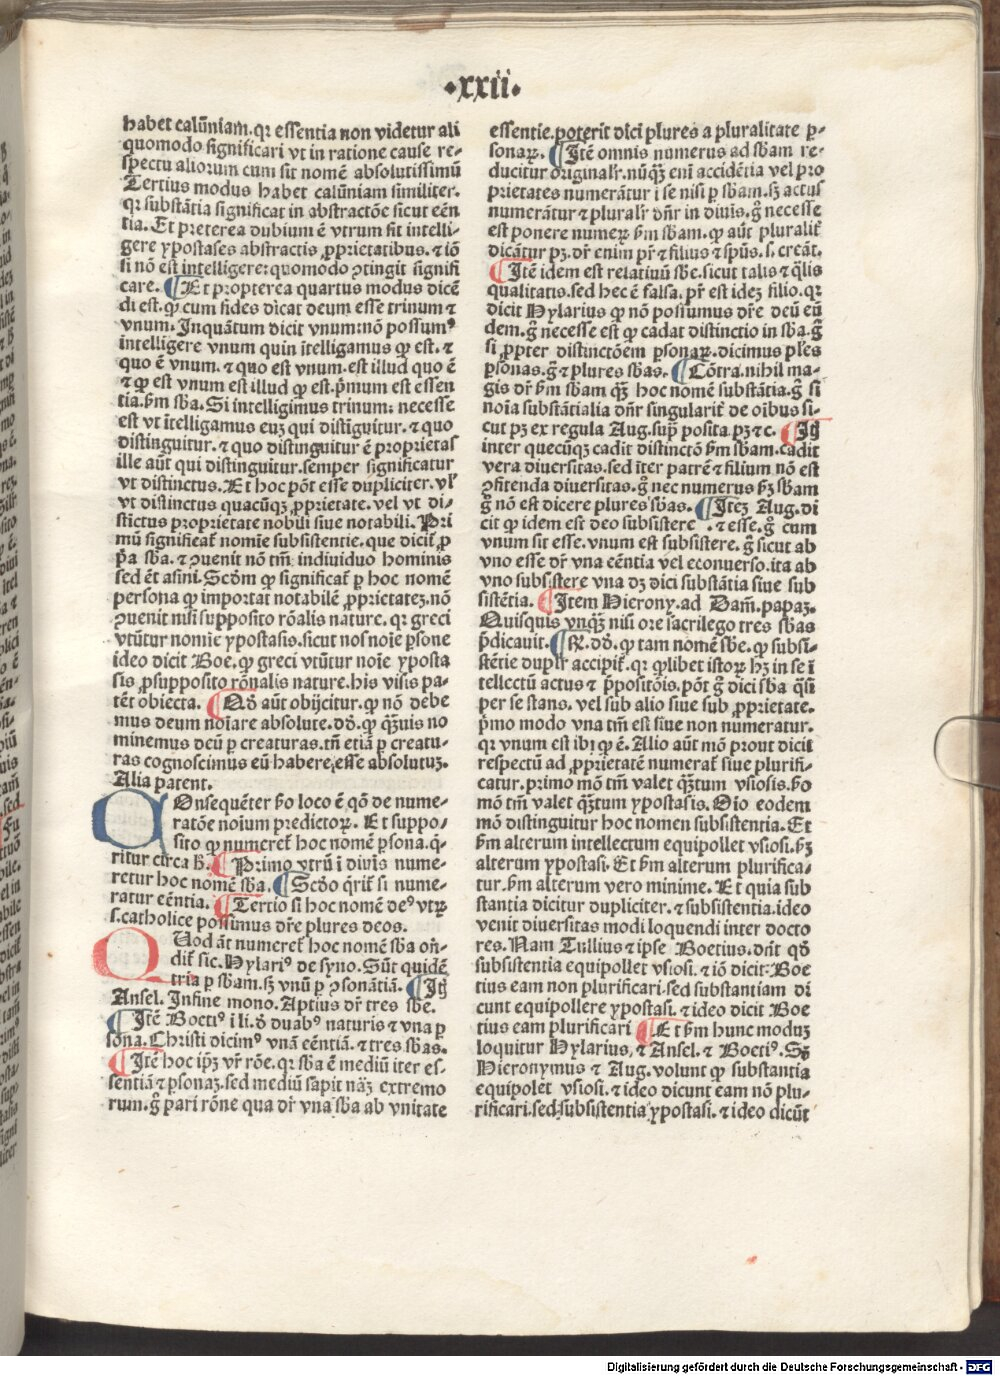 ·xxii·
habet calūniam. qꝛ essentia non videtur ali
quomodo significari vt in ratione cause re⸗
spectu aliorum cum sit nomē absolutissimū
Tertius modus habet calūniam similiter.
qꝛ substātia significat in abstractōe sicut eēn
tia. Et preterea dubium ē vtrum sit intelli⸗
gere ypostases abstractis ꝓprietatibus. ⁊ iō
si nō est intelligere: quomodo ꝯtingit signifi
care. ¶ Et propterea quartus modus dicē
di est. ꝙ cum fides dicat deum esse trinum ⁊
vnum. Inquātum dicit vnum: nō possumꝰ
intelligere vnum quin ītelligamus ꝙ est. ⁊
quo ē vnum. ⁊ quo est vnum. est illud quo ē
⁊ ꝙ est vnum est illud ꝙ est. p̄mum est essen
tia. ẜm sb̄a. Si intelligimus trinum: necesse
est vt ītelligamus euꝫ qui distīguitur. ⁊ quo
distinguitur. ⁊ quo distinguitur ē proprietas
ille aūt qui distinguitur. semper significatur
vt distinctus. Et hoc pōt esse dupliciter. vl'
vt distinctus quacūqꝫ ꝓprietate. vel vt di⸗
stictus proprietate nobili siue notabili. Pri
mū significat̄ nomīe subsistentie. que dicit̄ ꝓ
p̄a sb̄a. ⁊ ꝯuenit nō tm̄ indiuiduo hominis
sed ēt asini. Scd̄m ꝙ significat̄ ꝑ hoc nomē
persona ꝙ importat notabilē ꝓprietateꝫ. nō
ꝯuenit nisi supposito rōalis nature. qꝛ greci
vtūtur nomīe ypostasis. sicut nos noīe ꝑsone
ideo dicit Boe. ꝙ greci vtūtur noīe yposta
sis ꝓ supposito rōnalis nature. his visis pa⸗
tēt obiecta. ¶ Qd̄ aūt obijcitur. ꝙ nō debe
mus deum noīare absolute. dd̄. ꝙ qꝫuis no
minemus deū ꝑ creaturas. tn̄ etiā ꝑ creatu⸗
ras cognoscimus eū habere esse absolutuꝫ.
Alia patent.
COnsequēter ẜo loco ē qō de nume⸗
ratōe noīum predictoꝝ. Et suppo⸗
sito ꝙ numeret̄ hoc nomē ꝑsona. q̄⸗
ritur circa h̄. ¶ Primo vtrū ī diuis nume⸗
retur hoc nomē sb̄a. ¶ Scd̄o q̄rit̄ si nume⸗
ratur eēntia. ¶ Tertio si hoc nomē deꝰ vtꝝ
s. catholice possimus dr̄e plures deos.
QUod āt numeret̄ hoc nomē sb̄a oñ⸗
dit̄ sic. Hylariꝰ de syno. Sūt quidē
tria ꝑ sb̄am. sꝫ vnū ꝑ ꝯsonātiā. ¶ Itē
Ansel. In fine mono. Aptius dr̄ tres sb̄e.
¶ Itē Boetiꝰ ī li. d̄ duabꝰ naturis ⁊ vna ꝑ
sona. Christi dicimꝰ vnā eēntiā. ⁊ tres sb̄as.
¶ Itē hoc ip̄ꝫ vr̄ rōe. qꝛ sb̄a ē mediū iter es⸗
sentiā ⁊ ꝑsonaꝫ. sed mediū sapit nāꝫ extremo
rum. g̊ pari rōne qua dr̄ vna sb̄a ab vnitate
essentie. poterit dici plures a pluralitate ꝑ⸗
sonaꝝ. ¶ Itē omnis numerus ad sb̄am re⸗
ducitur originalr̄. nūqꝫ eni accidētia vel pro
prietates numerātur ī se nisi ꝑ sb̄am. sꝫ actus
numerātur ⁊ pluralr̄ dn̄r in diuis. g̊ necesse
est ponere numeꝝ ẜm sb̄am. ꝙ aūt pluralit̄
dicātur pꝫ. dr̄ enim pr̄ ⁊ filius ⁊ spūs. s. creāt.
¶ Itē idem est relatiuū sb̄e. sicut talis ⁊ q̄lis
qualitatis. sed hec ē falsa. pr̄ est ideꝫ filio. qꝛ
dicit Hylarius ꝙ nō possumus dr̄e deū eū
dem. g̊ necesse est ꝙ cadat distinctio in sb̄a. g̊
si ꝓpter distinctōem ꝑsonaꝝ. dicimus pl̄es
ꝑsonas. g̊ ⁊ plures sb̄as. ¶ Cōtra. nihil ma⸗
gis dr̄ ẜm sb̄am qꝫ hoc nomē substātia. g̊ si
noīa substātialia dn̄r singularit̄ de oībus si⸗
cut pꝫ ex regula Aug. supͥ posita. pꝫ ⁊c. ¶ Itē
inter quecūqꝫ cadit distinctō ẜm sb̄am. cadit
vera diuersitas. sed iter patrē ⁊ filium nō est
ꝯfitenda diuersitas. g̊ nec numerus ẜꝫ sb̄am
g̊ nō est dicere plures sb̄as. ¶ Iteꝫ Aug. di
cit ꝙ idem est deo subsistere . ⁊ esse. g̊ cum
vnum sit esse. vnum est subsistere. g̊ sicut ab
vno esse dr̄ vna eēntia vel econuerso. ita ab
vno subsistere vna dꝫ dici substātia siue sub
sistētia. ¶ Item Hierony. ad Dam̄. papaꝫ.
Quisquis vnqꝫ nisi ore sacrilego tres sb̄as
p̄dicauit. ¶ R̄. dd̄. ꝙ tam nomē sb̄e. ꝙ subsi⸗
stētie duplr̄ accipit̄. qꝛ qͥlibet istoꝝ hꝫ in se ī
tellectū actus ⁊ p̄positōis. pōt g̊ dici sb̄a q̄si
per se stans. vel sub alio siue sub ꝓprietate.
p̄mo modo vna tm̄ est siue non numeratur.
qꝛ vnum est ibi ꝙ ē. Alio aūt mō prout dicit
respectū ad ꝓprietatē numerat̄ siue plurifi⸗
catur. primo mō tm̄ valet qꝫtum vsiosis. ẜo
mō tm̄ valet qꝫtum ypostasis. Oīo eodem
mō distinguitur hoc nomen subsistentia. Et
ẜm alterum intellectum equipollet vsiosi. ẜꝫ
alterum ypostasi. Et ẜm alterum plurifica⸗
tur. ẜm alterum vero minime. Et quia sub
stantia dicitur dupliciter. ⁊ subsistentia. ideo
venit diuersitas modi loquendi inter docto
res. Nam Tullius ⁊ ipse Boetius. dn̄t qd̄
subsistentia equipollet vsiosi. ⁊ iō dicit Boe
tius eam non plurificari. sed substantiam di
cunt equipollere ypostasi. ⁊ ideo dicit Boe
tius eam plurificari ¶ Et ẜm hunc moduꝫ
loquitur Hylarius, ⁊ Ansel. ⁊ Boetiꝰ. Sꝫ
Hieronymus ⁊ Aug. volunt ꝙ substantia
equipolet vsiosi. ⁊ ideo dicunt eam nō plu⸗
rificari. sed subsistentia ypostasi. ⁊ ideo dicūt
Digitalisierung gefördert durch die Deutsche Forschungsgemeinschaft - DFG